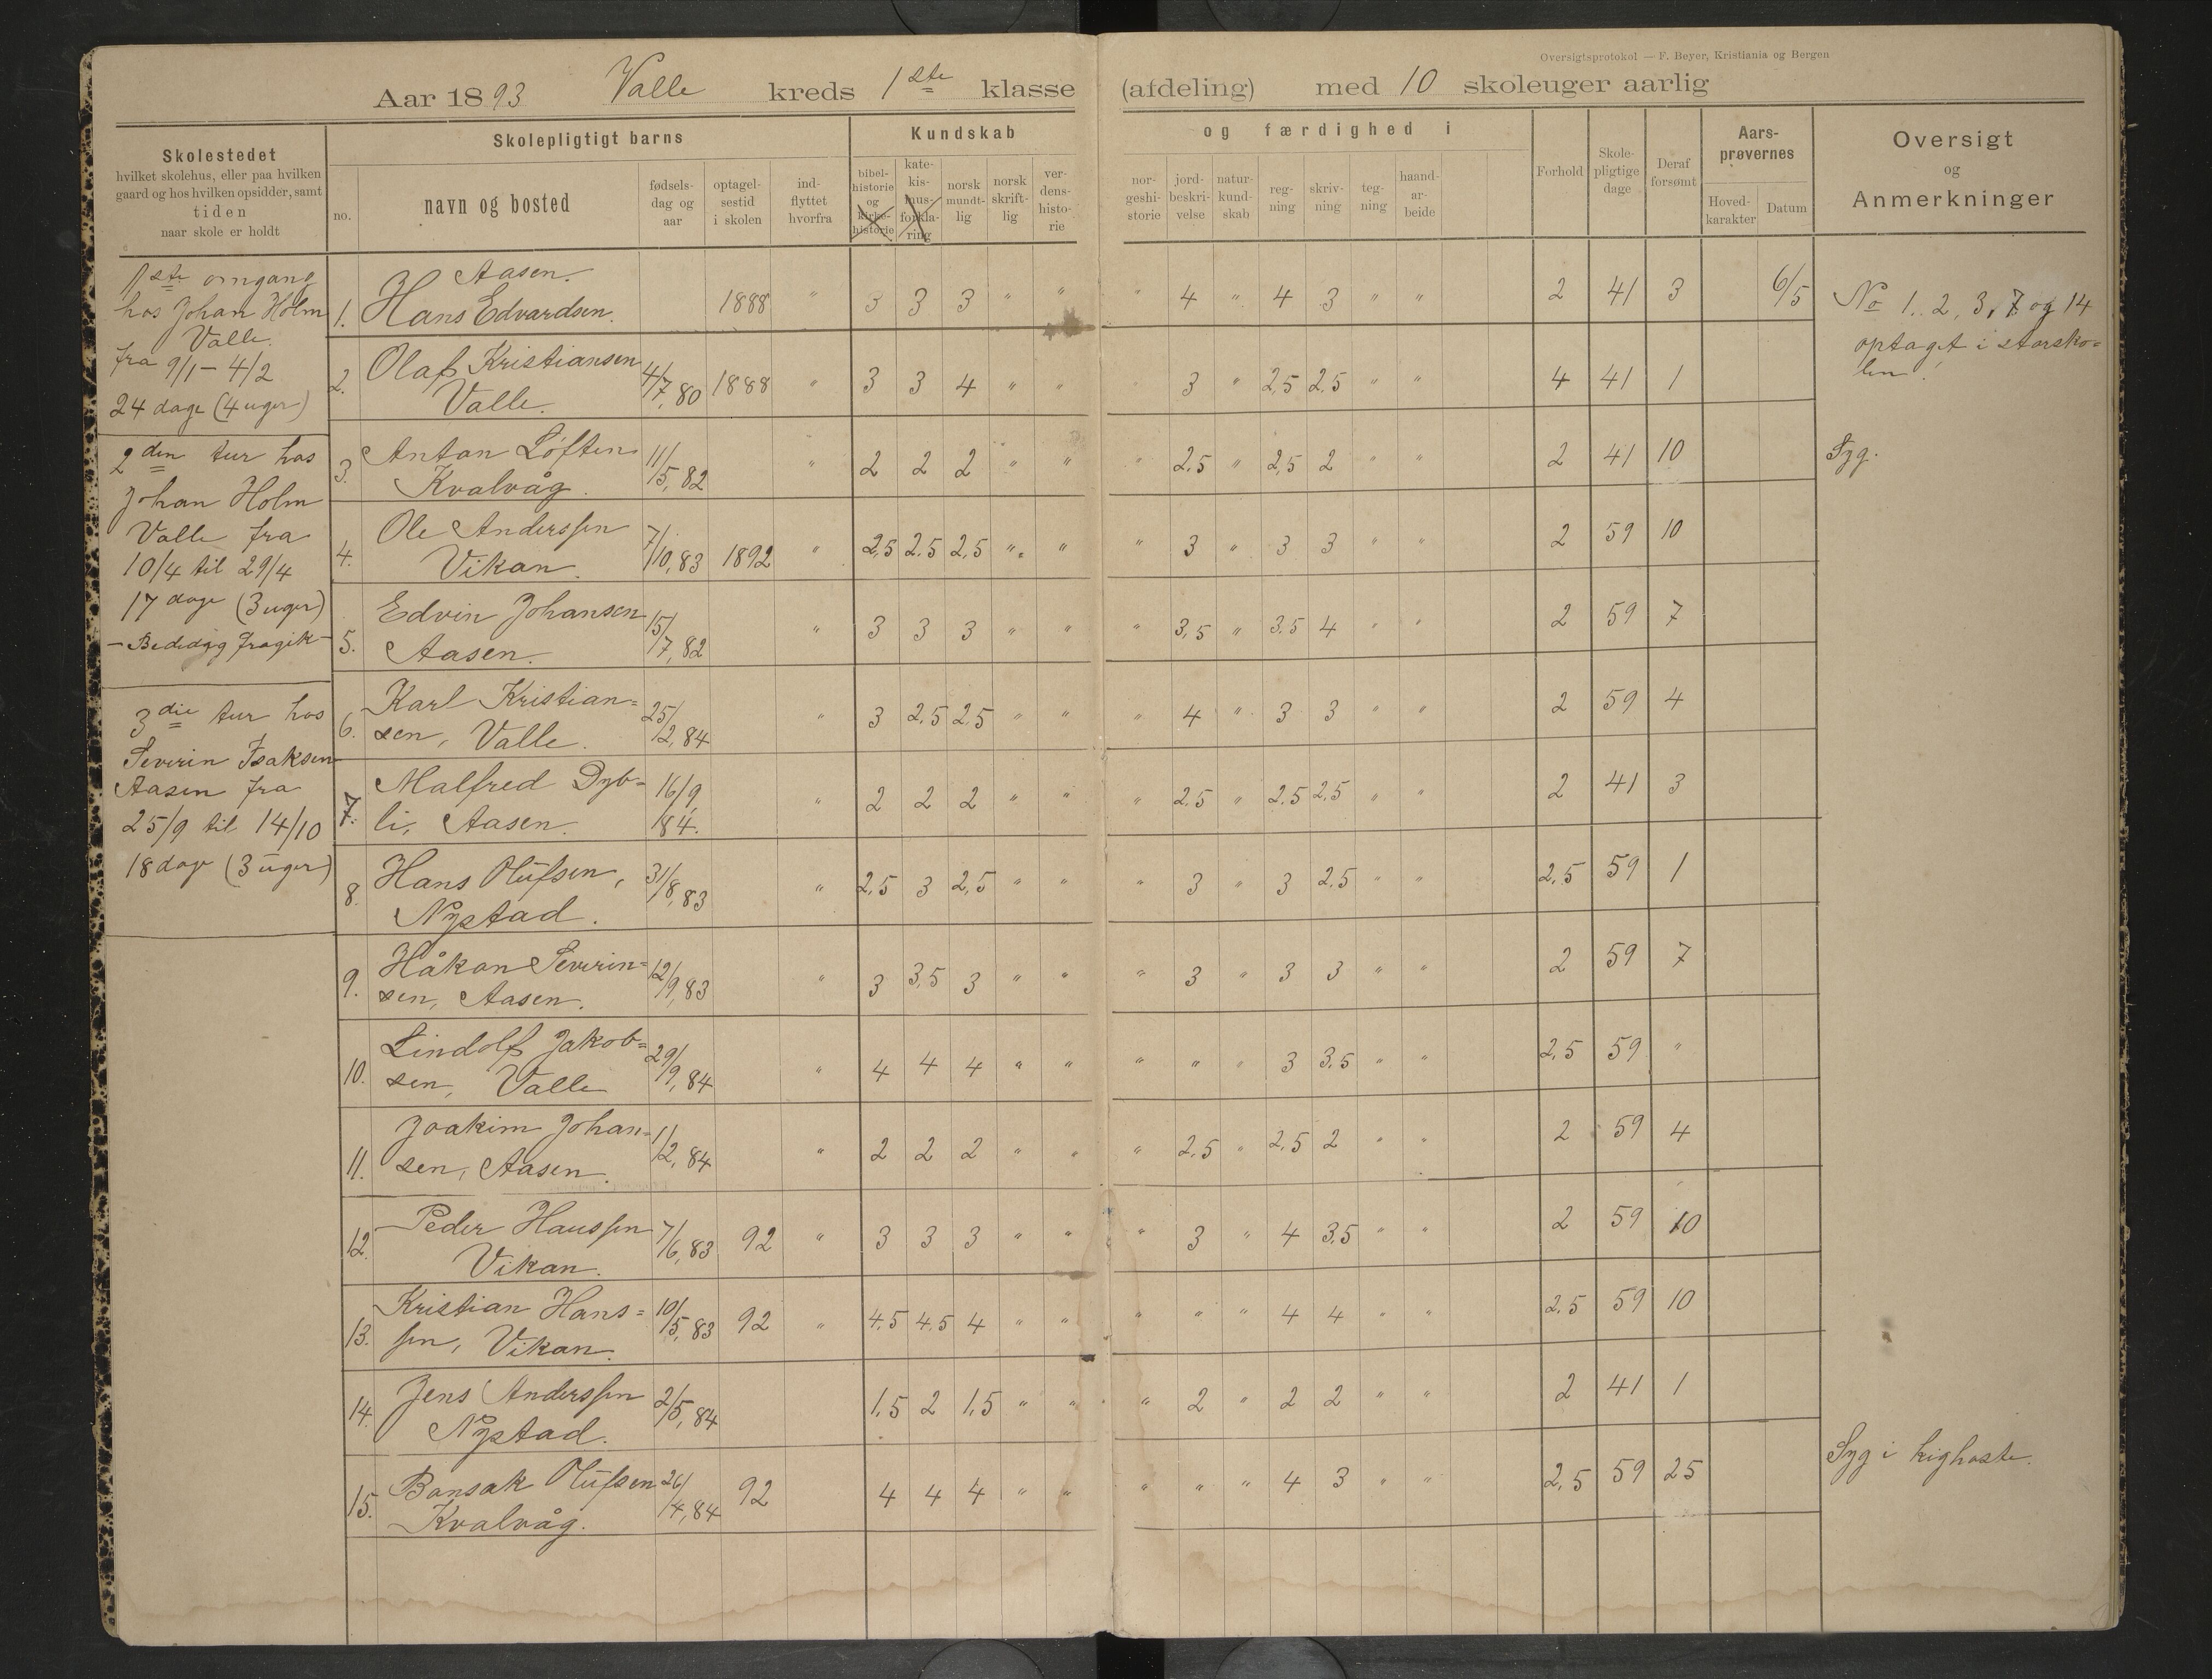 Oversigtsprotokol — F. Beyer, Kristiania og Bergen
Aar 1893 Valle kreds 1ste klasse (afdeling) med 10 skoleuger aarlig
Skolestedet
hvilket skolehus, eller paa hvilken
gaard og hos hvilken opsidder, samt
tiden
naar skole er holdt
Skolepligtigt barns
no.
navn og bosted
fødsels-
dag og
aar
optagel-
sestid
i skolen
ind-
flyttet
hvorfra
Kundskab og færdighed i
bibel-
historie
og
kirke-
historie
kate-
kis-
mus-
forkla-
ring
norsk
mundt-
lig
norsk
skrift-
lig
ver-
dens-
histo-
rie
nor-
geshi-
storie
jord-
beskri-
velse
natur-
kund-
skab
reg-
ning
skriv-
ning
teg-
ning
haand-
ar-
beide
Forhold
Skole-
pligtige
dage
Deraf
forsømt
Aars-
prøvernes
Hoved-
karakter
Datum
Oversigt
og
Anmerkninger
1ste omgang
hos Johan Holm
Valle.
fra 9/1 – 4/2
24 dage (4 uger)
2den tur hos
Johan Holm
Valle fra
10/4 til 29/4
17 dage (3 uger)
– Bededag fragik –
3die tur hos
Severin Isaksen
Aasen fra
25/9 til 14/10
18 dage (3 uger)
Aasen.
1. Hans Edvardsen. 1888 " 3 3 3 " " " 4 " 4 3 " " 2 41 3 6/5
No 1, 2, 3, 7 og 14
optaget i storsko=
len.
2. Olaf Kristiansen
Valle. 4/7, 80 1888 " 3 3 4 " " " 3 " 2,5 2,5 " " 4 41 1
3. Anton Løften
Kvalvåg. 11/5, 82 " 2 2 2 " " " 2,5 " 2,5 2 " " 2 41 10 Syg.
4. Ole Anderssen
Vikan. 7/10, 83 1892 " 2,5 2,5 2,5 " " " 3 " 3 3 " " 2 59 10
5. Edvin Johansen
Aasen. 15/7, 82 " 3 3 3 " " " 3,5 " 3,5 4 " " 2 59 7
6. Karl Kristian=
sen, Valle. 25/2, 84 " 3 2,5 2,5 " " " 4 " 3 3 " " 2 59 4
7. Malfred Dyb=
li, Aasen. 16/9, 84. " 2 2 2 " " " 2,5 " 2,5 2,5 " " 2 41 3
8. Hans Olufsen,
Nystad. 31/8, 83 " 2,5 3 2,5 " " " 3 " 3 2,5 " " 2,5 59 1
9. Håkon Severin=
sen, Aasen. 12/9, 83 " 3 3,5 3 " " " 3 " 3 3 " " 2 59 7
10. Lindolf Jakob=
sen, Valle 29/9, 84 " 4 4 4 " " " " " 3 3,5 " " 2,5 59 "
11. Joakim Johan=
sen, Aasen. 1/2, 84 " 2 2 2 " " " 2,5 " 2,5 2 " " 2 59 4
12. Peder Hanssen
Vikan. 7/6, 83 92 " 3 3 3 " " " 3 " 4 3,5 " " 2 59 10
13. Kristian Hans=
sen, Vikan. 10/5, 83 92 " 4,5 4,5 4 " " " " " 4 4 " " 2,5 59 10
14. Jens Anderssen
Nystad. 2/5, 84 1,5 2 1,5 " " " 2 " 2 2 " " 2 41 1
15. Bonsak Olufsen
Kvalvåg. 26/4, 84 92 4 4 4 " " " " " 4 3 " " 2,5 59 25 Syg i kighoste.